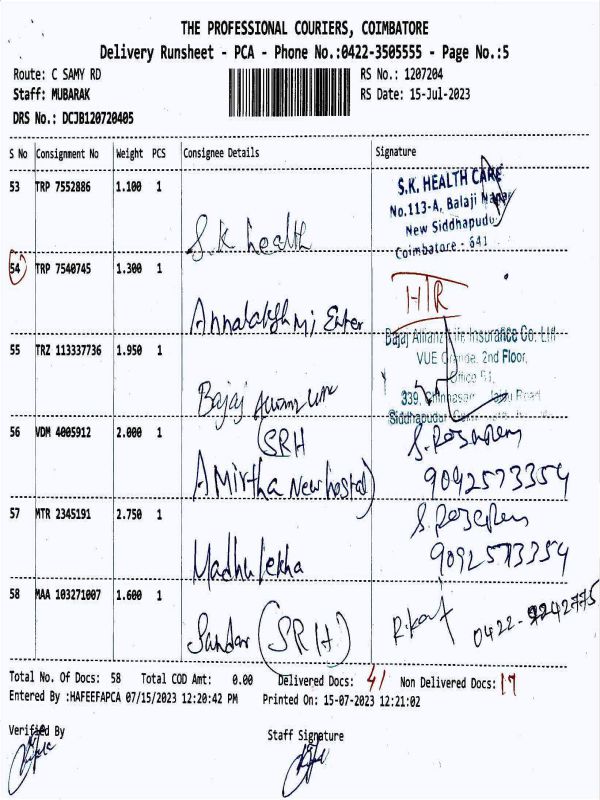 THE PROFESSIONAL COURIERS, COIMBATORE
Delivery Runsheet - PCA - Phone No.:0422-3505555 - Page No.:5
Route: C SAMY RD RS No.: 1207204
Staff: MUBARAK RS Date: 15-Jul-2023
DRS No.: DCJB120720405
S No Consignment No Weight PCS Consignee Details Signature
53 TRP 7552886 1.100 1
S.K. HEALTH CARE
No.113-A, Balaji Nagar
New Siddhapudur
Coimbatore - 641
S.K health
54 TRP 7540745 1.300 1
HTR
Annalakshmi Enter
55 TRZ 113337736 1.950 1
Bajaj Allianz Life Insurance Co. Ltd
VUE Grande, 2nd Floor,
Office 51,
339,
Siddhapudur
Bajaj
56 VDM 4005912 2.000 1
(SRH
Amirtha New hostal)
9092573354
57 MTR 2345191 2.750 1
Madhulekha
9092573354
58 MAA 103271007 1.600 1
(SRH)
0422-
Total No. Of Docs: 58 Total COD Amt: 0.00 Delivered Docs: 41 Non Delivered Docs: 17
Entered By :HAFEEFAPCA 07/15/2023 12:20:42 PM Printed On: 15-07-2023 12:21:02
Verified By Staff Signature